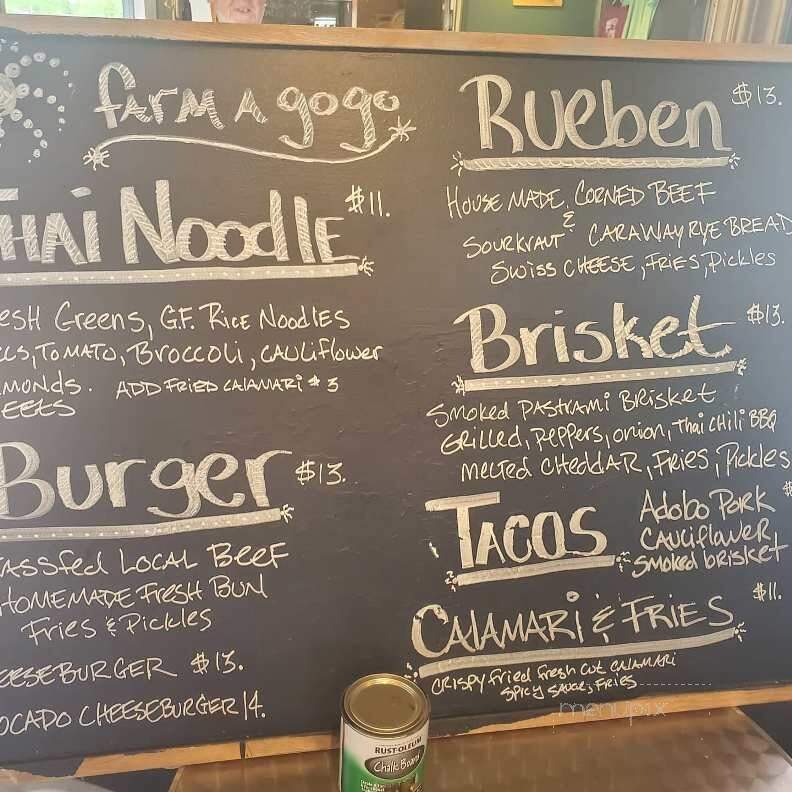 farm a gogo
THai Noodle $11.
esH Greens, G.F. Rice Noodles
TOMATO, Broccoli, CAULiflower
MONDS. ADD FRIED CALAMARI $3
EETS
Burger $13.
assfed LOCAL Beef
HOMEMADE Fresh BUN
Fries & Pickles
EESEBURGER $13.
OCADO CHEESEBURGER 14.
Rueben $13.
House MADE, CORNED BEEF
&
Sourkraut CARAWAY RYE BREAD
Swiss CHEESE, FRIES, Pickles
Brisket $13.
Smoked PASTRAMI BRISKET
GRilled, peppers, onion, Thai CHili BBQ
Melted CHEDDAR, FRies, Pickles
TACOS
Adobo PORK
CAUliflower
Smoked brisket
CALAMARI & FRIES $11.
CRISPY fried fresh cut CALAMARI
SPICY SAUCE, FRIES
menupix
RUST-OLEUM
Chalk Board